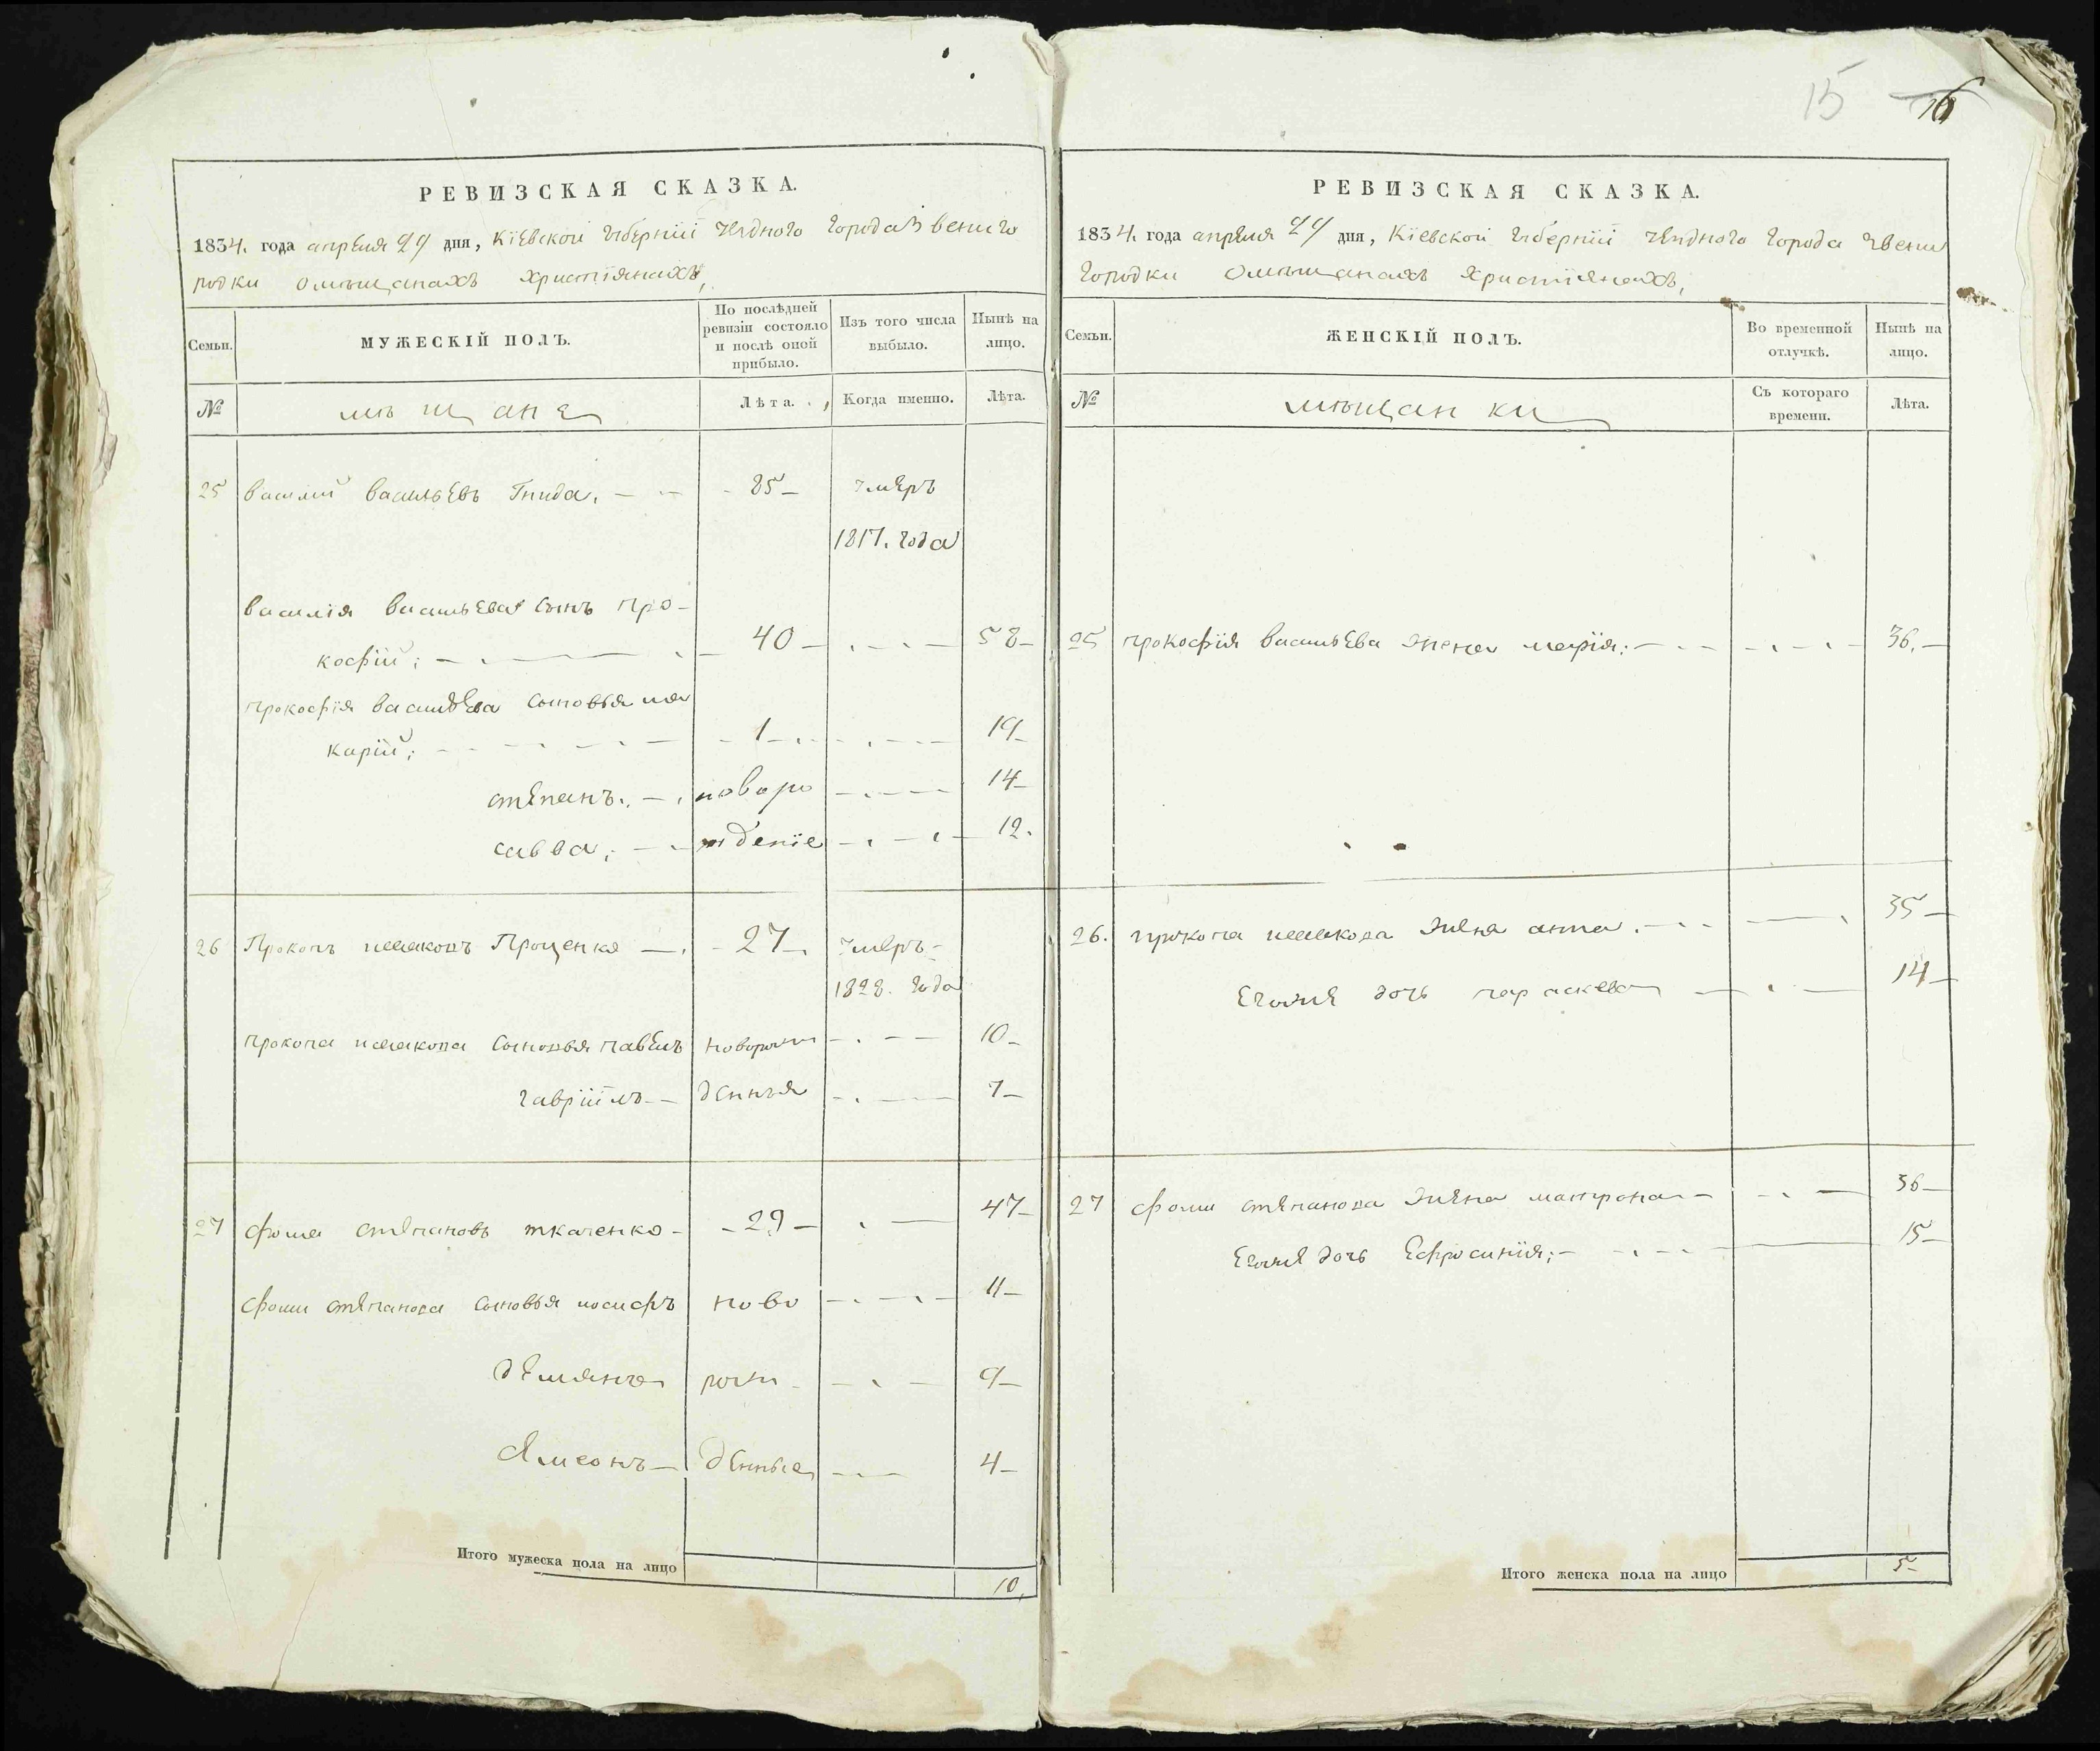 15 16
РЕВИЗСКАЯ СКАЗКА.
1834. года апреля 29 дня, Кіевской губерніи уездного города Звениго
родки о мѣщанахъ христіянахъ,
Семьи. МУЖЕСКІЙ ПОЛЪ. По послѣдней ревизіи состояло и послѣ оной прибыло. Изъ того числа выбыло. Нынѣ на лицо.
№ мѣщане Лѣта. Когда именно. Лѣта.
25 Василий Васильевъ Гнида. 85 умеръ
1817. года
Василія Васильева сынъ Про-
кофий; 40 58
Прокофія Васильева сыновья Ма
карий; 1 19
Степанъ. новоро 14
Савва; жденіе 12.
26 Прокопъ Исаковъ Проценко 27 умеръ
1828. года
Прокопа Исакова сыновья Павелъ новорож 10
Гавріилъ денныя 7
27 Фома Степановъ Ткаченко 29 47
Фомы Степанова сыновья Иосифъ ново 11
Демянъ рож 9
Симеонъ денные 4
Итого мужеска пола на лицо 10,
РЕВИЗСКАЯ СКАЗКА.
1834. года апреля 29 дня, Кіевской губерніи уездного города Звени
городки о мѣщанахъ христіянахъ,
Семьи. ЖЕНСКІЙ ПОЛЪ. Во временной отлучкѣ. Нынѣ на лицо.
№ мѣщанки Съ котораго времени. Лѣта.
25 Прокофія Васильева жена Марія; 36.
26. Прокопа Исакова жена Анна. 35
Егоже дочь Параскева 14
27 Фомы Степанова жена Матрона 36
Егоже дочь Ефросинія; 15
Итого женска пола на лицо 5